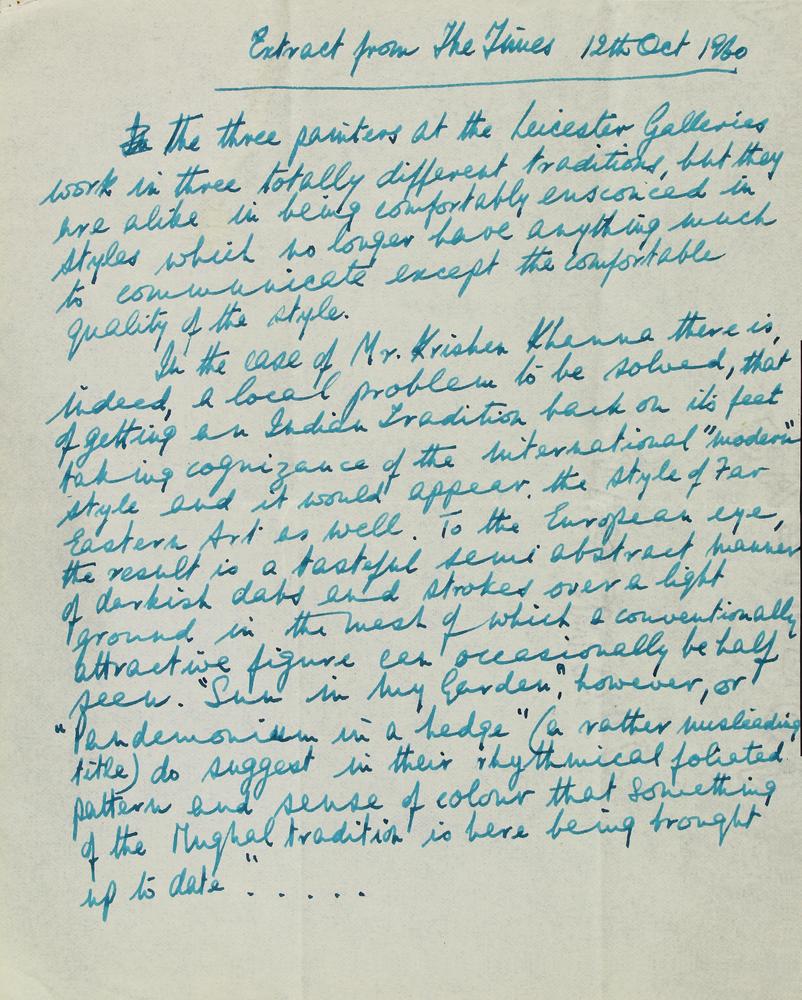 Extract from The Times 12th Oct 1960
the three painters at the Leicester Galleries
work in three totally different traditions, but they
are alike in being comfortably ensconced in
styles which no longer have anything much
to communicate except the comfortable
quality of the style.
In the case of Mr. Krishen Khanna there is,
indeed, a local problem to be solved, that
of getting an Indian Tradition back on its feet
taking cognizance of the international "modern"
style and it would appear, the style of Far
Eastern Art as well. To the European eye,
the result is a tasteful semi abstract manner
of darkish dabs and strokes over a light
ground in the mesh of which a conventionally
attractive figure can occasionally be half
seen. "Sun in my Garden", however, or
"Pandemonium in a hedge" (a rather misleading
title) do suggest in their rhythmical foliated
pattern and sense of colour that something
of the Mughal tradition is here being brought
up to date " . . . . .